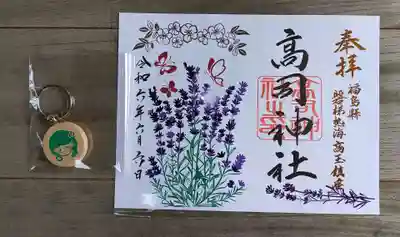 奉拝
福島縣
磐梯熱海高玉鎮座
高司神社
令和六年六月六日